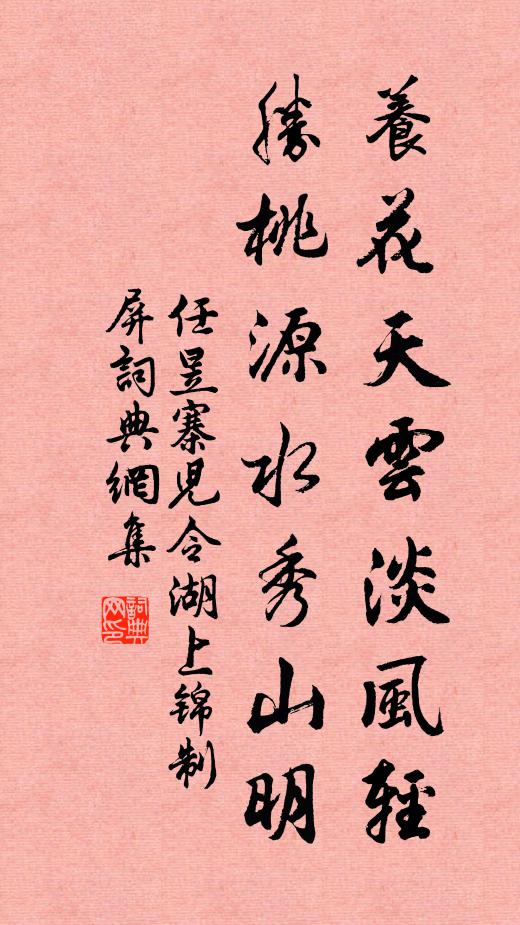 養花天雲淡風輕
勝桃源水秀山明
任昱寨兒令湖上錦制
屏詞典網集
詞典网印